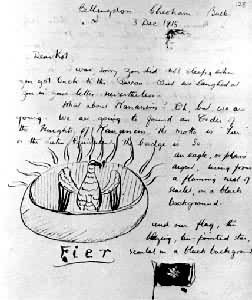 Bellingdon Chesham Bucks
3 Dec 1915
Dear Kot
I was sorry you did not sleep, when
you got back to the Barran. But we laughed at
you in your letter, nevertheless.
What about Rananim? Oh, but we are
going. We are going to found an Order of
the Knights of Rananim. The motto is "Fier"
or the Latin equivalent. The badge is So:
an eagle, or phoenix
argent, rising from
a flaming nest of
scarlet, on a black
background.
and our flag, the
blazing, ten-pointed star,
scarlet on a black background
Fier